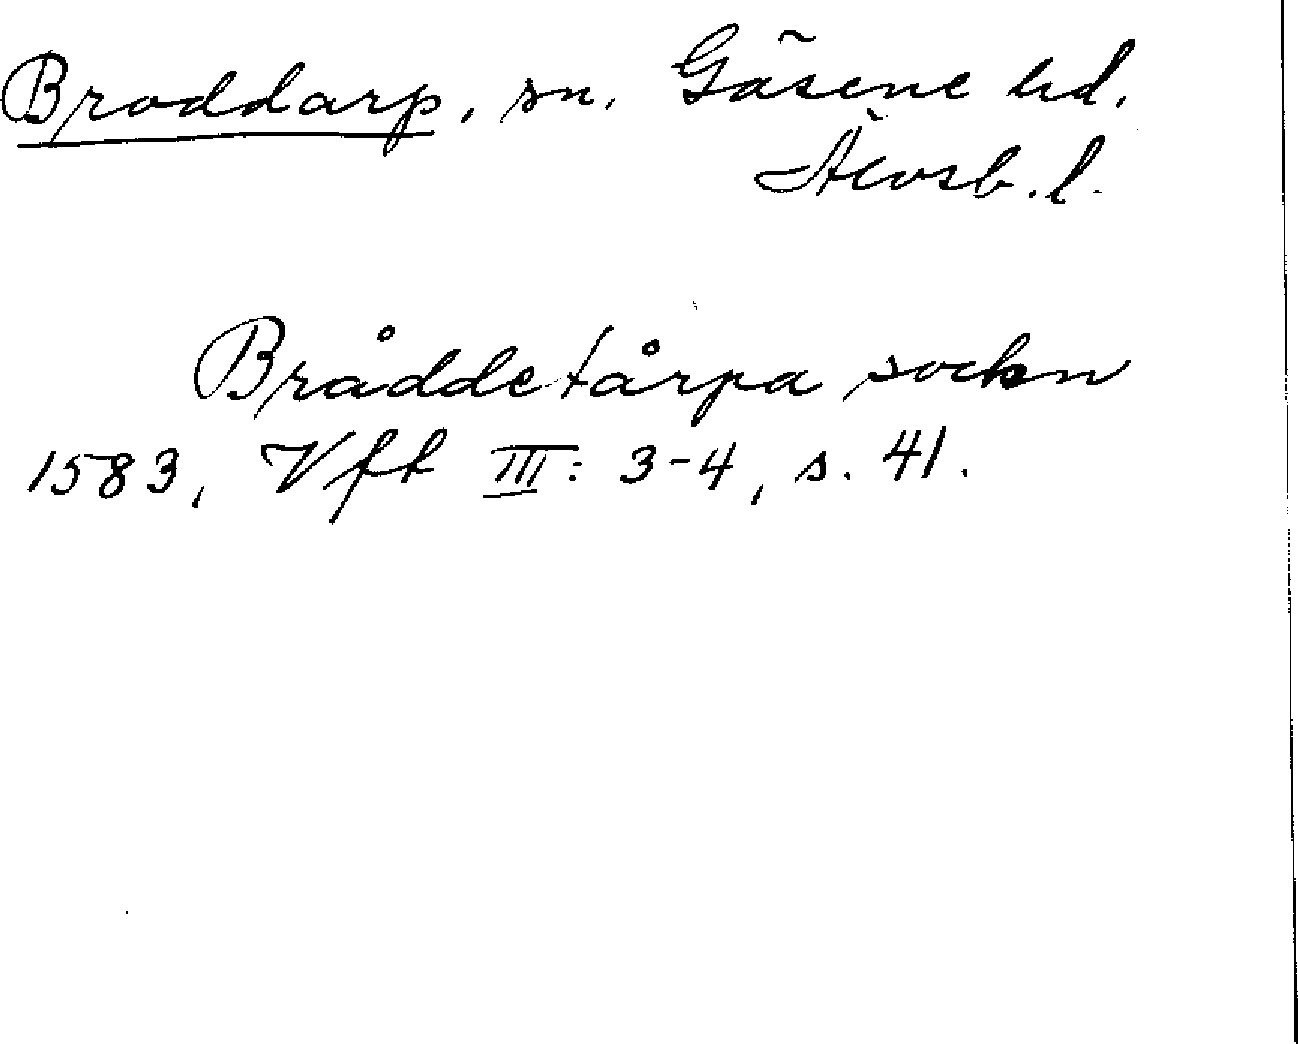 Broddarp, sn. Gäsene hd.
Älvsb. l.
Bråddetårpa sockn
1583, Vft III: 3-4, s. 41.